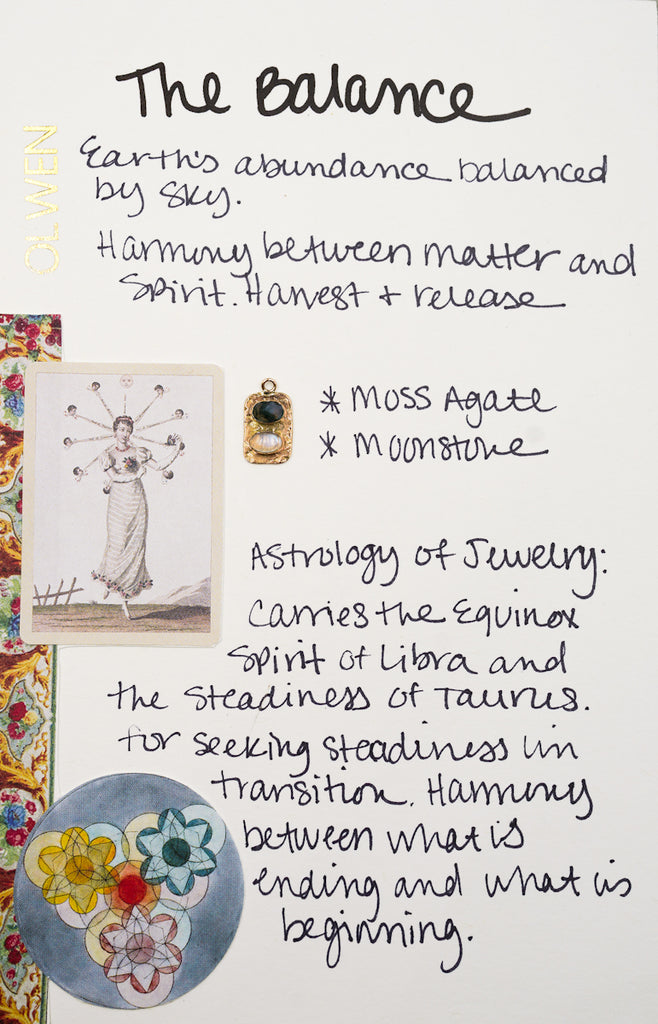 The Balance
OLWEN
Earth's abundance balanced
by sky.
Harmony between matter and
Spirit. Harvest + release
* Moss Agate
* Moonstone
Astrology of Jewelry:
Carries the Equinox
Spirit of Libra and
the steadiness of Taurus.
for seeking steadiness in
transition. Harmony
between what is
ending and what is
beginning.